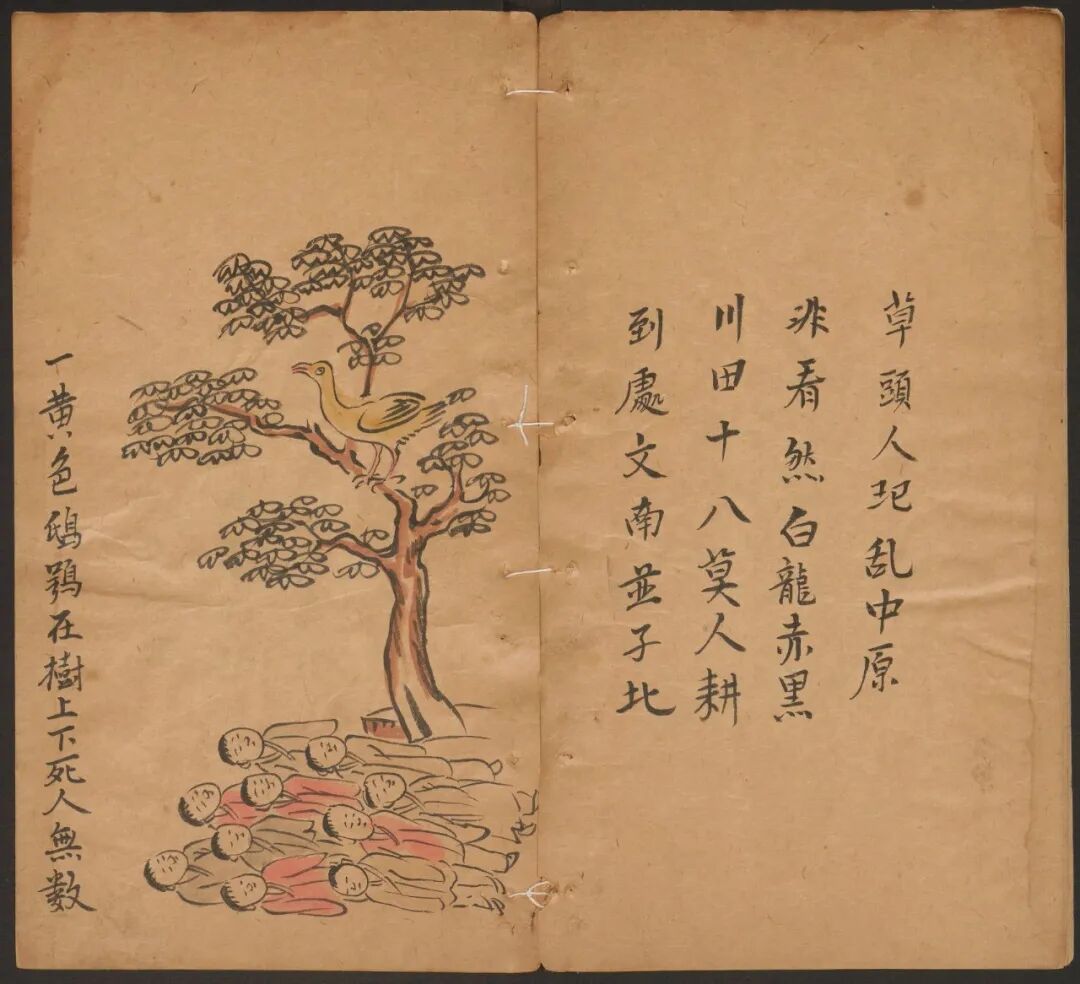 草頭人犯乱中原
非看然白龍赤黒
川田十八莫人耕
到處文南並子北
一黄色鴟鴞在樹上下死人無数